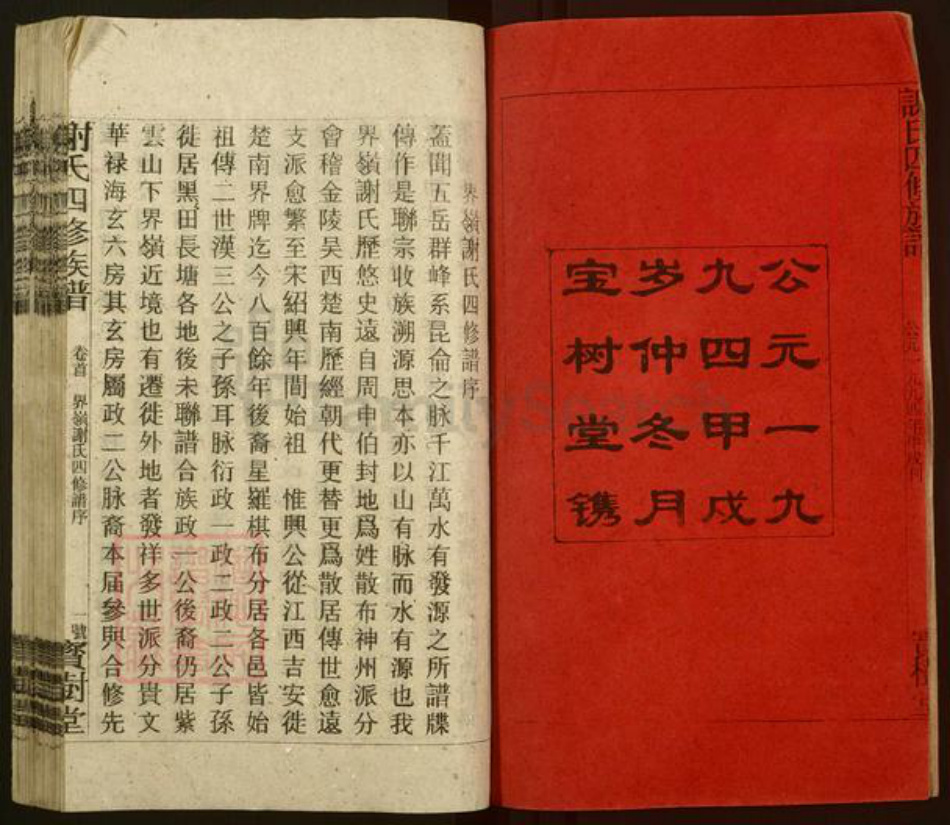 公元一九
九四甲戌
岁仲冬月
宝树堂镌
界嶺謝氏四修譜序
蓋聞五岳群峰系昆侖之脉千江萬水有發源之所譜牒
傳作是聯宗收族溯源思本亦以山有脉而水有源也我
界嶺謝氏歷悠史遠自周申伯封地爲姓散布神州派分
會稽金陵吴西楚南歷經朝代更替更爲散居傳世愈遠
支派愈繁至宋紹興年間始祖 惟興公從江西吉安徙
楚南界牌迄今八百餘年後裔星羅棋布分居各邑皆始
祖傳二世漢三公之子孫耳脉衍政一政二政二公子孫
徙居黑田長塘各地後未聯譜合族政一公後裔仍居紫
雲山下界嶺近境也有遷徙外地者發祥多世派分貴文
華禄海玄六房其玄房屬政二公脉裔本届參與合修先
謝氏四修族譜 卷首 界嶺謝氏四修譜序 一號 寶樹堂